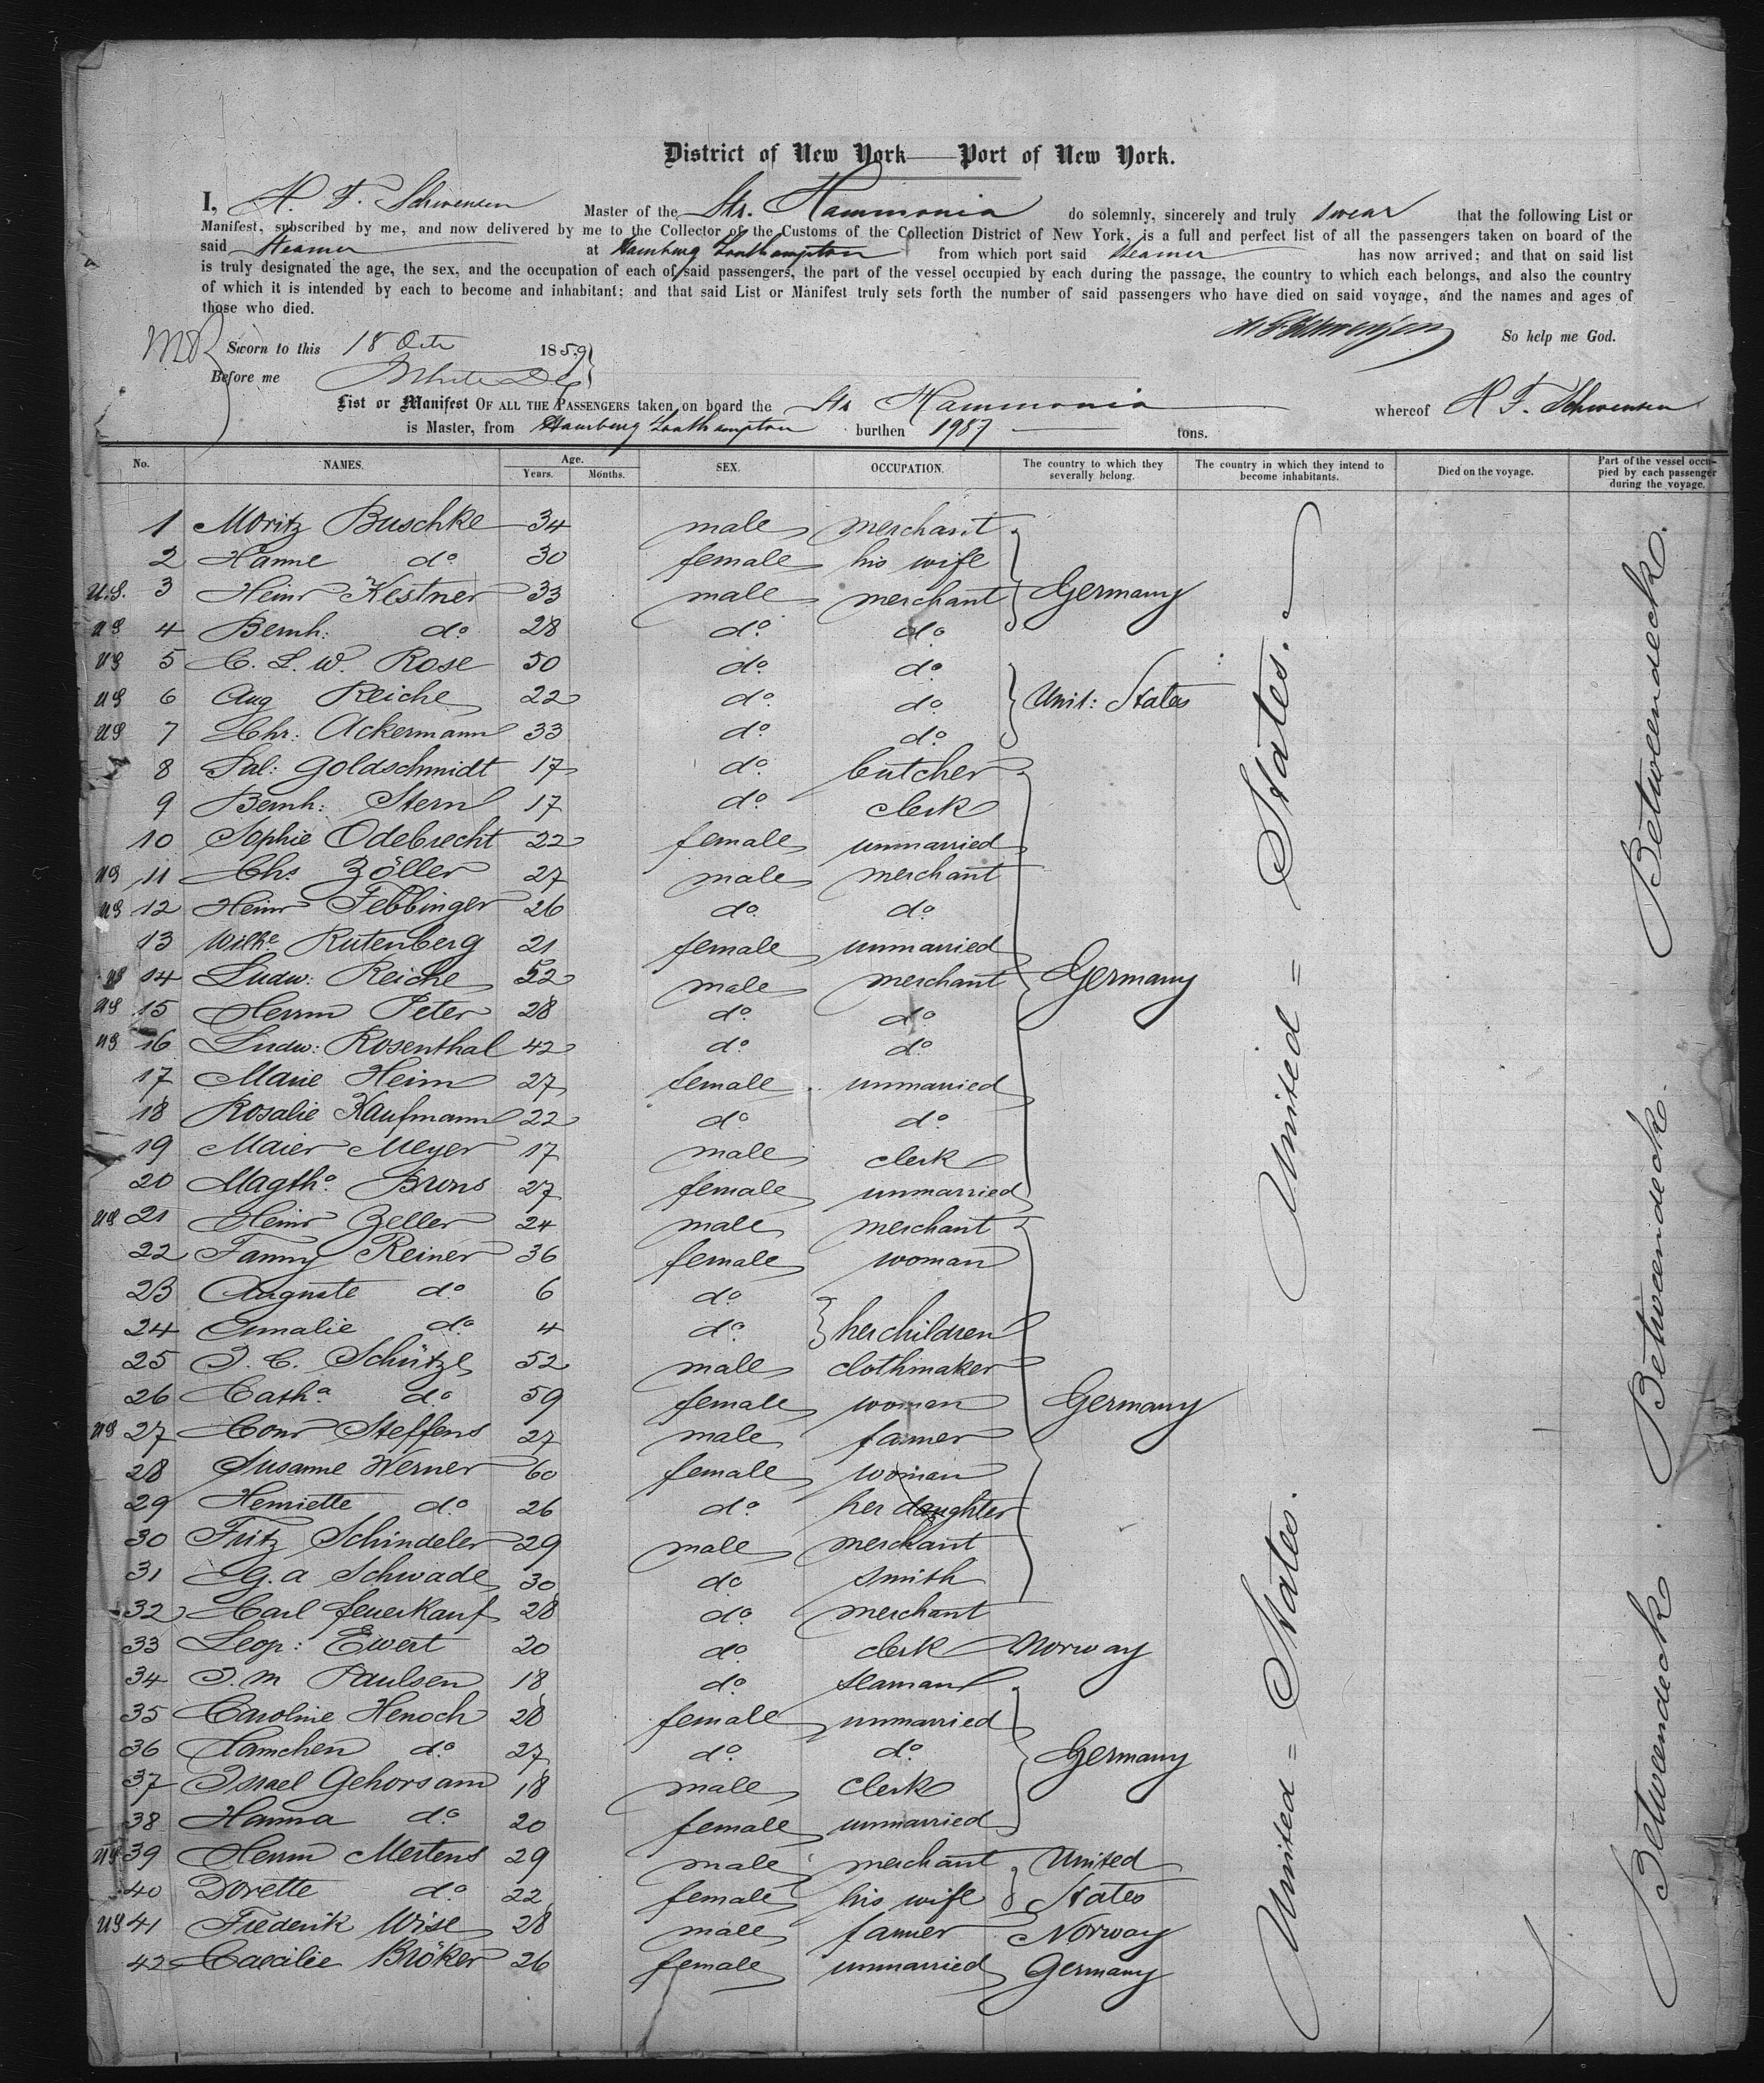 District of New York — Port of New York.
I, H. F. Schwensen Master of the Str. Hammonia do solemnly, sincerely and truly swear that the following List or
Manifest, subscribed by me, and now delivered by me to the Collector of the Customs of the Collection District of New York, is a full and perfect list of all the passengers taken on board of the
said Steamer at Hamburg Southampton from which port said Steamer has now arrived; and that on said list
is truly designated the age, the sex, and the occupation of each of said passengers, the part of the vessel occupied by each during the passage, the country to which each belongs, and also the country
of which it is intended by each to become and inhabitant; and that said List or Manifest truly sets forth the number of said passengers who have died on said voyage, and the names and ages of
those who died.
H F Schwensen So help me God.
Sworn to this 18 Octr 1859
Before me
List or Manifest OF ALL THE PASSENGERS taken on board the Str Hammonia whereof H. F. Schwensen
is Master, from Hamburg Southampton burthen 1987 tons.
No. NAMES. Age. Years. Months. SEX. OCCUPATION. The country to which they severally belong. The country in which they intend to become inhabitants. Died on the voyage. Part of the vessel occupied by each passenger during the voyage.
1 Moritz Buschke 34 male merchant
2 Hanne do 30 female his wife
U.S. 3 Heinr Kestner 33 male merchant Germany
US 4 Bernh: do 28 do do
US 5 C. L. W. Rose 50 do do
US 6 Aug Reiche 22 do do Unit: States
US 7 Chr: Ackermann 33 do do
8 Sal: Goldschmidt 17 do butcher
9 Bernh: Stern 17 do clerk
10 Sophie Odebrecht 22 female unmarried
US 11 Chs Zöller 27 male merchant
US 12 Heinr Febbinger 26 do do
13 Wilhe Rutenberg 21 female unmarried
US 14 Ludw: Reiche 52 male merchant Germany
US 15 Herrm Peter 28 do do
US 16 Ludw: Rosenthal 42 do do
17 Marie Heim 27 female unmarried
18 Rosalie Kaufmann 22 do do
19 Maier Meyer 17 male clerk
20 Magtha Bruns 27 female unmarried
US 21 Heinr Zeller 24 male merchant
22 Fanny Reiner 36 female woman
23 Auguste do 6 do
24 Emalie do 4 do her children
25 J. C. Schütze 52 male clothmaker
26 Catha do 59 female woman Germany
US 27 Conr Steffens 27 male farmer
28 Susanne Werner 60 female woman
29 Henriette do 26 do her daughter
30 Fritz Schindeler 29 male merchant
31 G. A Schwade 30 do smith
32 Carl Feuerkauf 28 do merchant
33 Leop: Ewert 20 do clerk Norway
34 J. M Paulsen 18 do seaman
35 Caroline Henoch 28 female unmarried
36 Hamchen do 27 do do Germany
37 Israel Gehorsam 18 male clerk
38 Hanna do 20 female unmarried
US 39 Herrm Mertens 29 male merchant United
40 Dorette do 22 female his wife States
US 41 Frederik Wise 28 male farmer Norway
42 Caecilie Bröker 26 female unmarried Germany
United = States.
United = States.
Betweendeck.
Betweendeck.
Betweendeck.